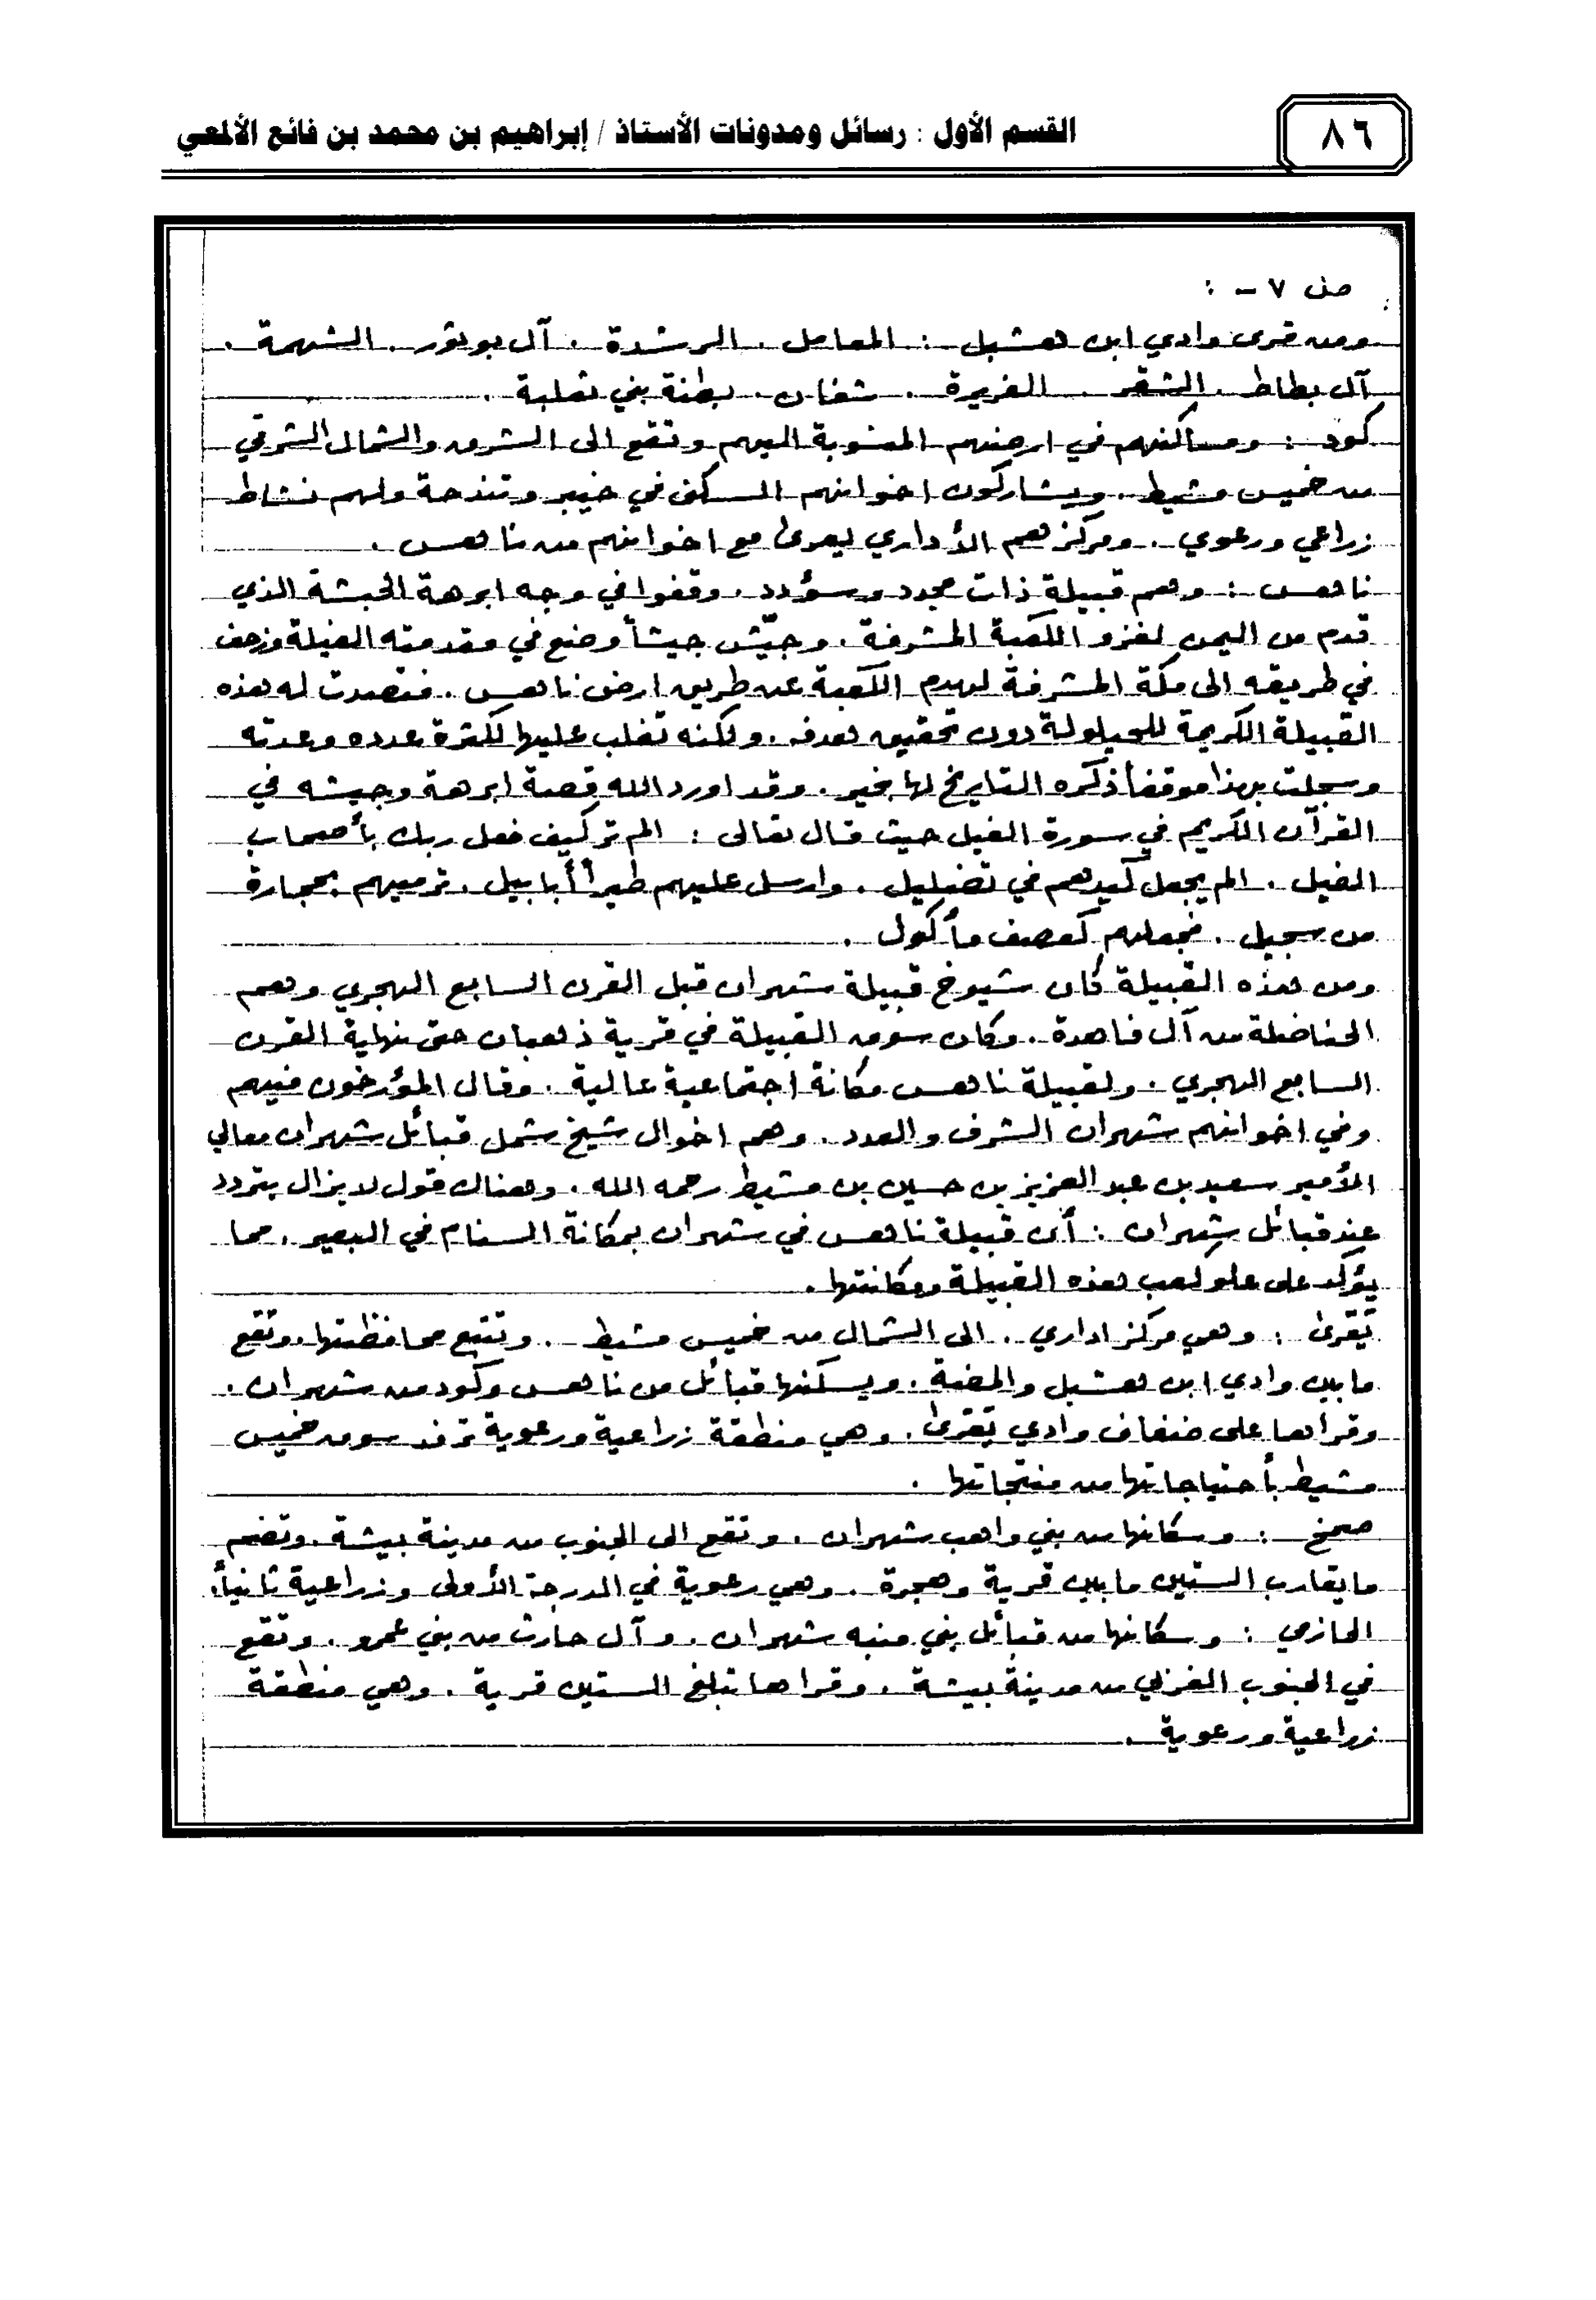 ٨٦
القسم الأول : رسائل ومدونات الأستاذ / إبراهيم بن محمد بن فائع الألمعي
ص ٧ - :
ومن قرى وادي ابن هشبل : المعامل . الرشدة . آل بو ثور . الشهمة .
آل بطاط . الشقر . الغريرة . شغان . بطنة بني ثعلبة .
كود : ومساكنهم في ارضهم المنسوبة اليهم وتقع الى الشرق والشمال الشرقي
من خميس مشيط . ويشاركون اخوانهم السكن في خيبر وتندحة ولهم نشاط
زراعي ورعوي . ومركزهم الأداري يعرى مع اخوانهم من ناهس .
ناهس : وهم قبيلة ذات مجد وسؤدد . وقفوا في وجه ابرهة الحبشة الذي
قدم من اليمن لغزو الكعبة المشرفة . وجيّش جيشاً وضع في مقدمته الفيلة وزحف
في طريقه الى مكة المشرفة ليهدم الكعبة عن طريق ارض ناهس . فتصدت له هذه
القبيلة الكريمة للحيلولة دون تحقيق هدفه . ولكنه تغلب عليها لكثرة عدده وعدته
وسجلت بهذا موقفاً ذكره التاريخ لها بخير . وقد اورد الله قصة ابرهة وجيشه في
القرآن الكريم في سورة الفيل حيث قال تعالى : الم تر كيف فعل ربك بأصحاب
الفيل . الم يجعل كيدهم في تضليل . وارسل عليهم طيراً أبابيل . ترميهم بحجارة
من سجيل . فجعلهم كعصف مأكول .
ومن هذه القبيلة كان شيوخ قبيلة شهران قبل القرن السابع الهجري وهم
الحناضلة من آل فاهدة . وكان سوق القبيلة في قرية ذهبان حتى نهاية القرن
السابع الهجري . ولقبيلة ناهس مكانة اجتماعية عالية . وقال المؤرخون فيهم
وفي اخوانهم شهران الشرف والعدد . وهم اخوال شيخ شمل قبائل شهران معالي
الأمير سعيد بن عبد العزيز بن حسين بن مشيط رحمه الله . وهناك قول لا يزال يتردد
عند قبائل شهران : أن قبيلة ناهس في شهران بمكانة السنام في البعير . مما
يؤكد على علو كعب هذه القبيلة ومكانتها .
يَعْرى : وهي مركز اداري . الى الشمال من خميس مشيط . وتتبع محافظتها . وتقع
ما بين وادي ابن هشبل والمضة . ويسكنها قبائل من ناهس وكود من شهران .
وقراها على ضفاف وادي يَعْرى . وهي منطقة زراعية ورعوية ترفد سوق خميس
مشيط بأحتياجاتها من منتجاتها .
صمخ : وسكانها من بني واهب شهران . وتقع الى الجنوب من مدينة بيشة . وتضم
ما يقارب الستين ما بين قرية وهجرة . وهي رعوية في الدرجة الأولى وزراعية ثانياً .
الحازمي : وسكانها من قبائل بني منبه شهران . وآل حارث من بني عمرو . وتقع
في الجنوب الغربي من مدينة بيشة . وقراها تبلغ الستين قرية . وهي منطقة
زراعية ورعوية .